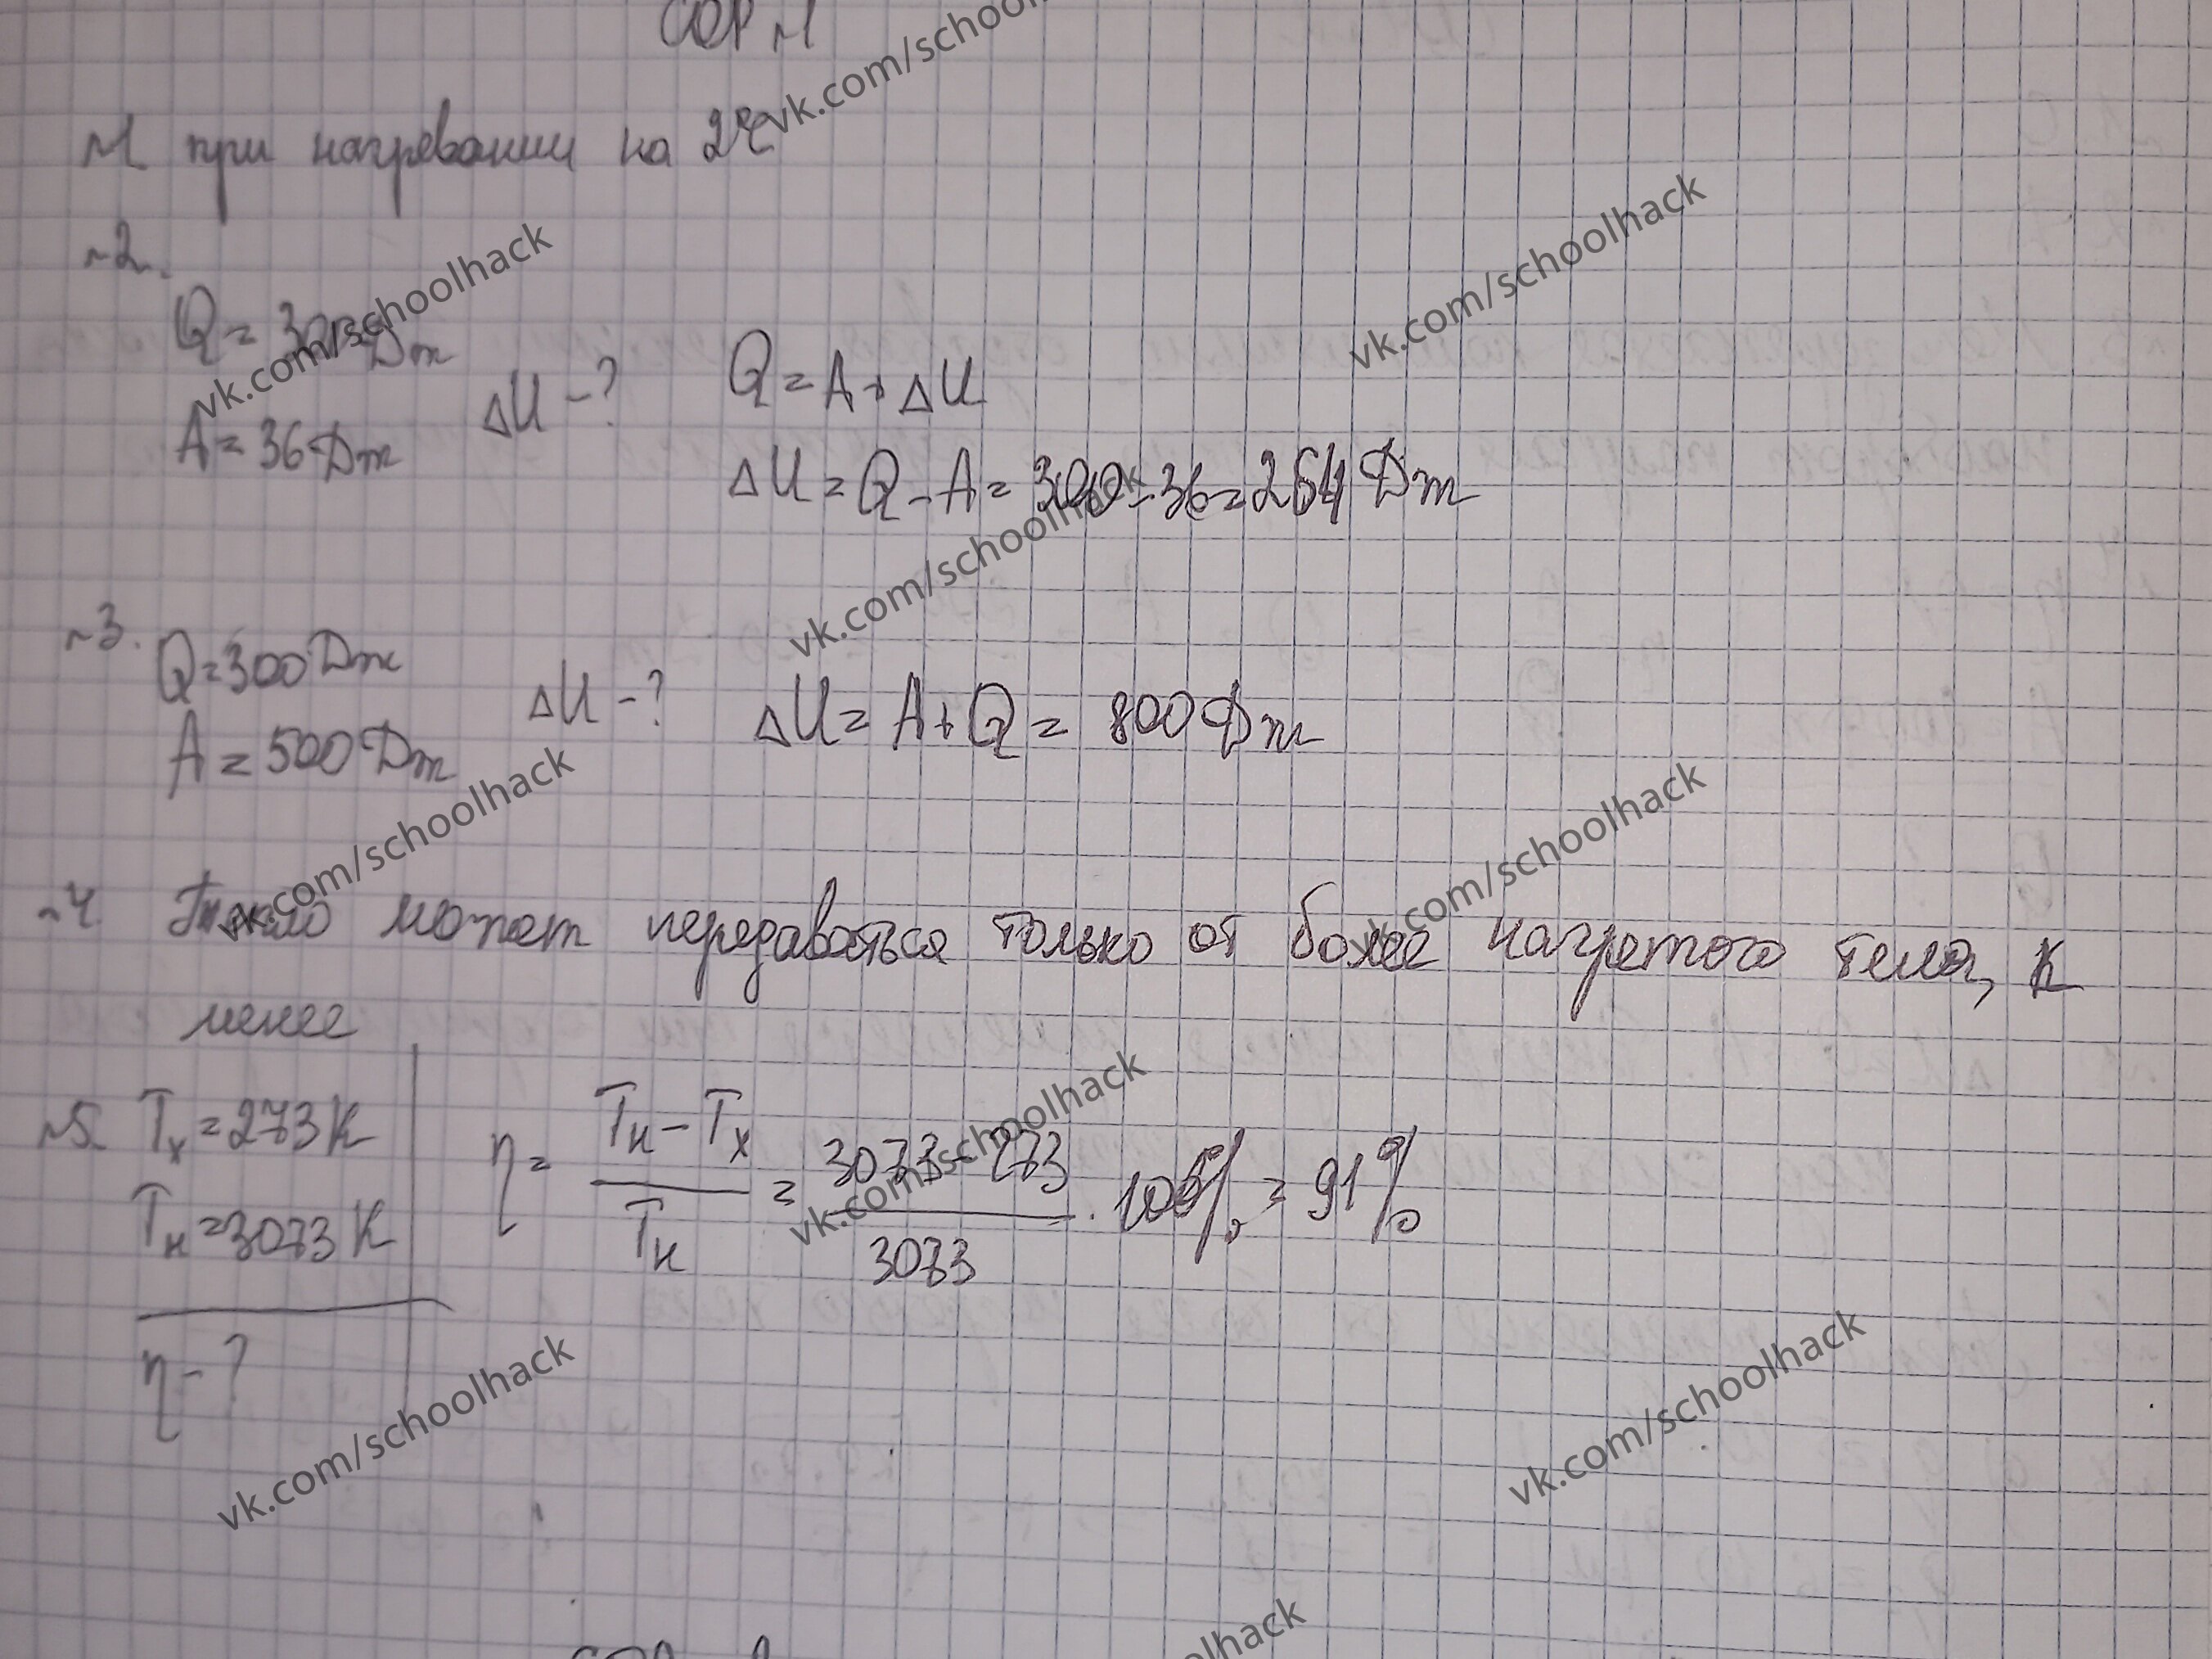 СОР №1
№1 при нагревании на 2°C
№2.
Q = 300 Дж
A = 36 Дж
ΔU - ?
Q = A + ΔU
ΔU = Q - A = 300 - 36 = 264 Дж
№3.
Q = 300 Дж
A = 500 Дж
ΔU - ?
ΔU = A + Q = 800 Дж
№4. Тепло может передаваться только от более нагретого тела, к
менее
№5. Tх = 273 К
Tн = 3073 К
η - ?
η = Tн - Tх / Tн = 3073 - 273 / 3073 · 100% = 91%
vk.com/schoolhack
vk.com/schoolhack
vk.com/schoolhack
vk.com/schoolhack
vk.com/schoolhack
vk.com/schoolhack
vk.com/schoolhack
vk.com/schoolhack
vk.com/schoolhack
olhack